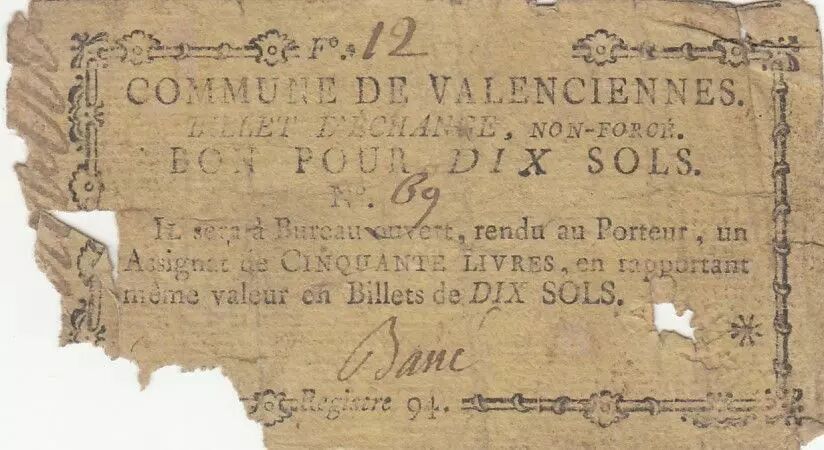 F°. 12
COMMUNE DE VALENCIENNES.
BILLET D'ÉCHANGE, NON-FORCÉ.
BON POUR DIX SOLS.
N°. 69
IL sera à Bureau ouvert, rendu au Porteur, un
Assignat de CINQUANTE LIVRES, en rapportant
même valeur en Billets de DIX SOLS.
Registre 94.